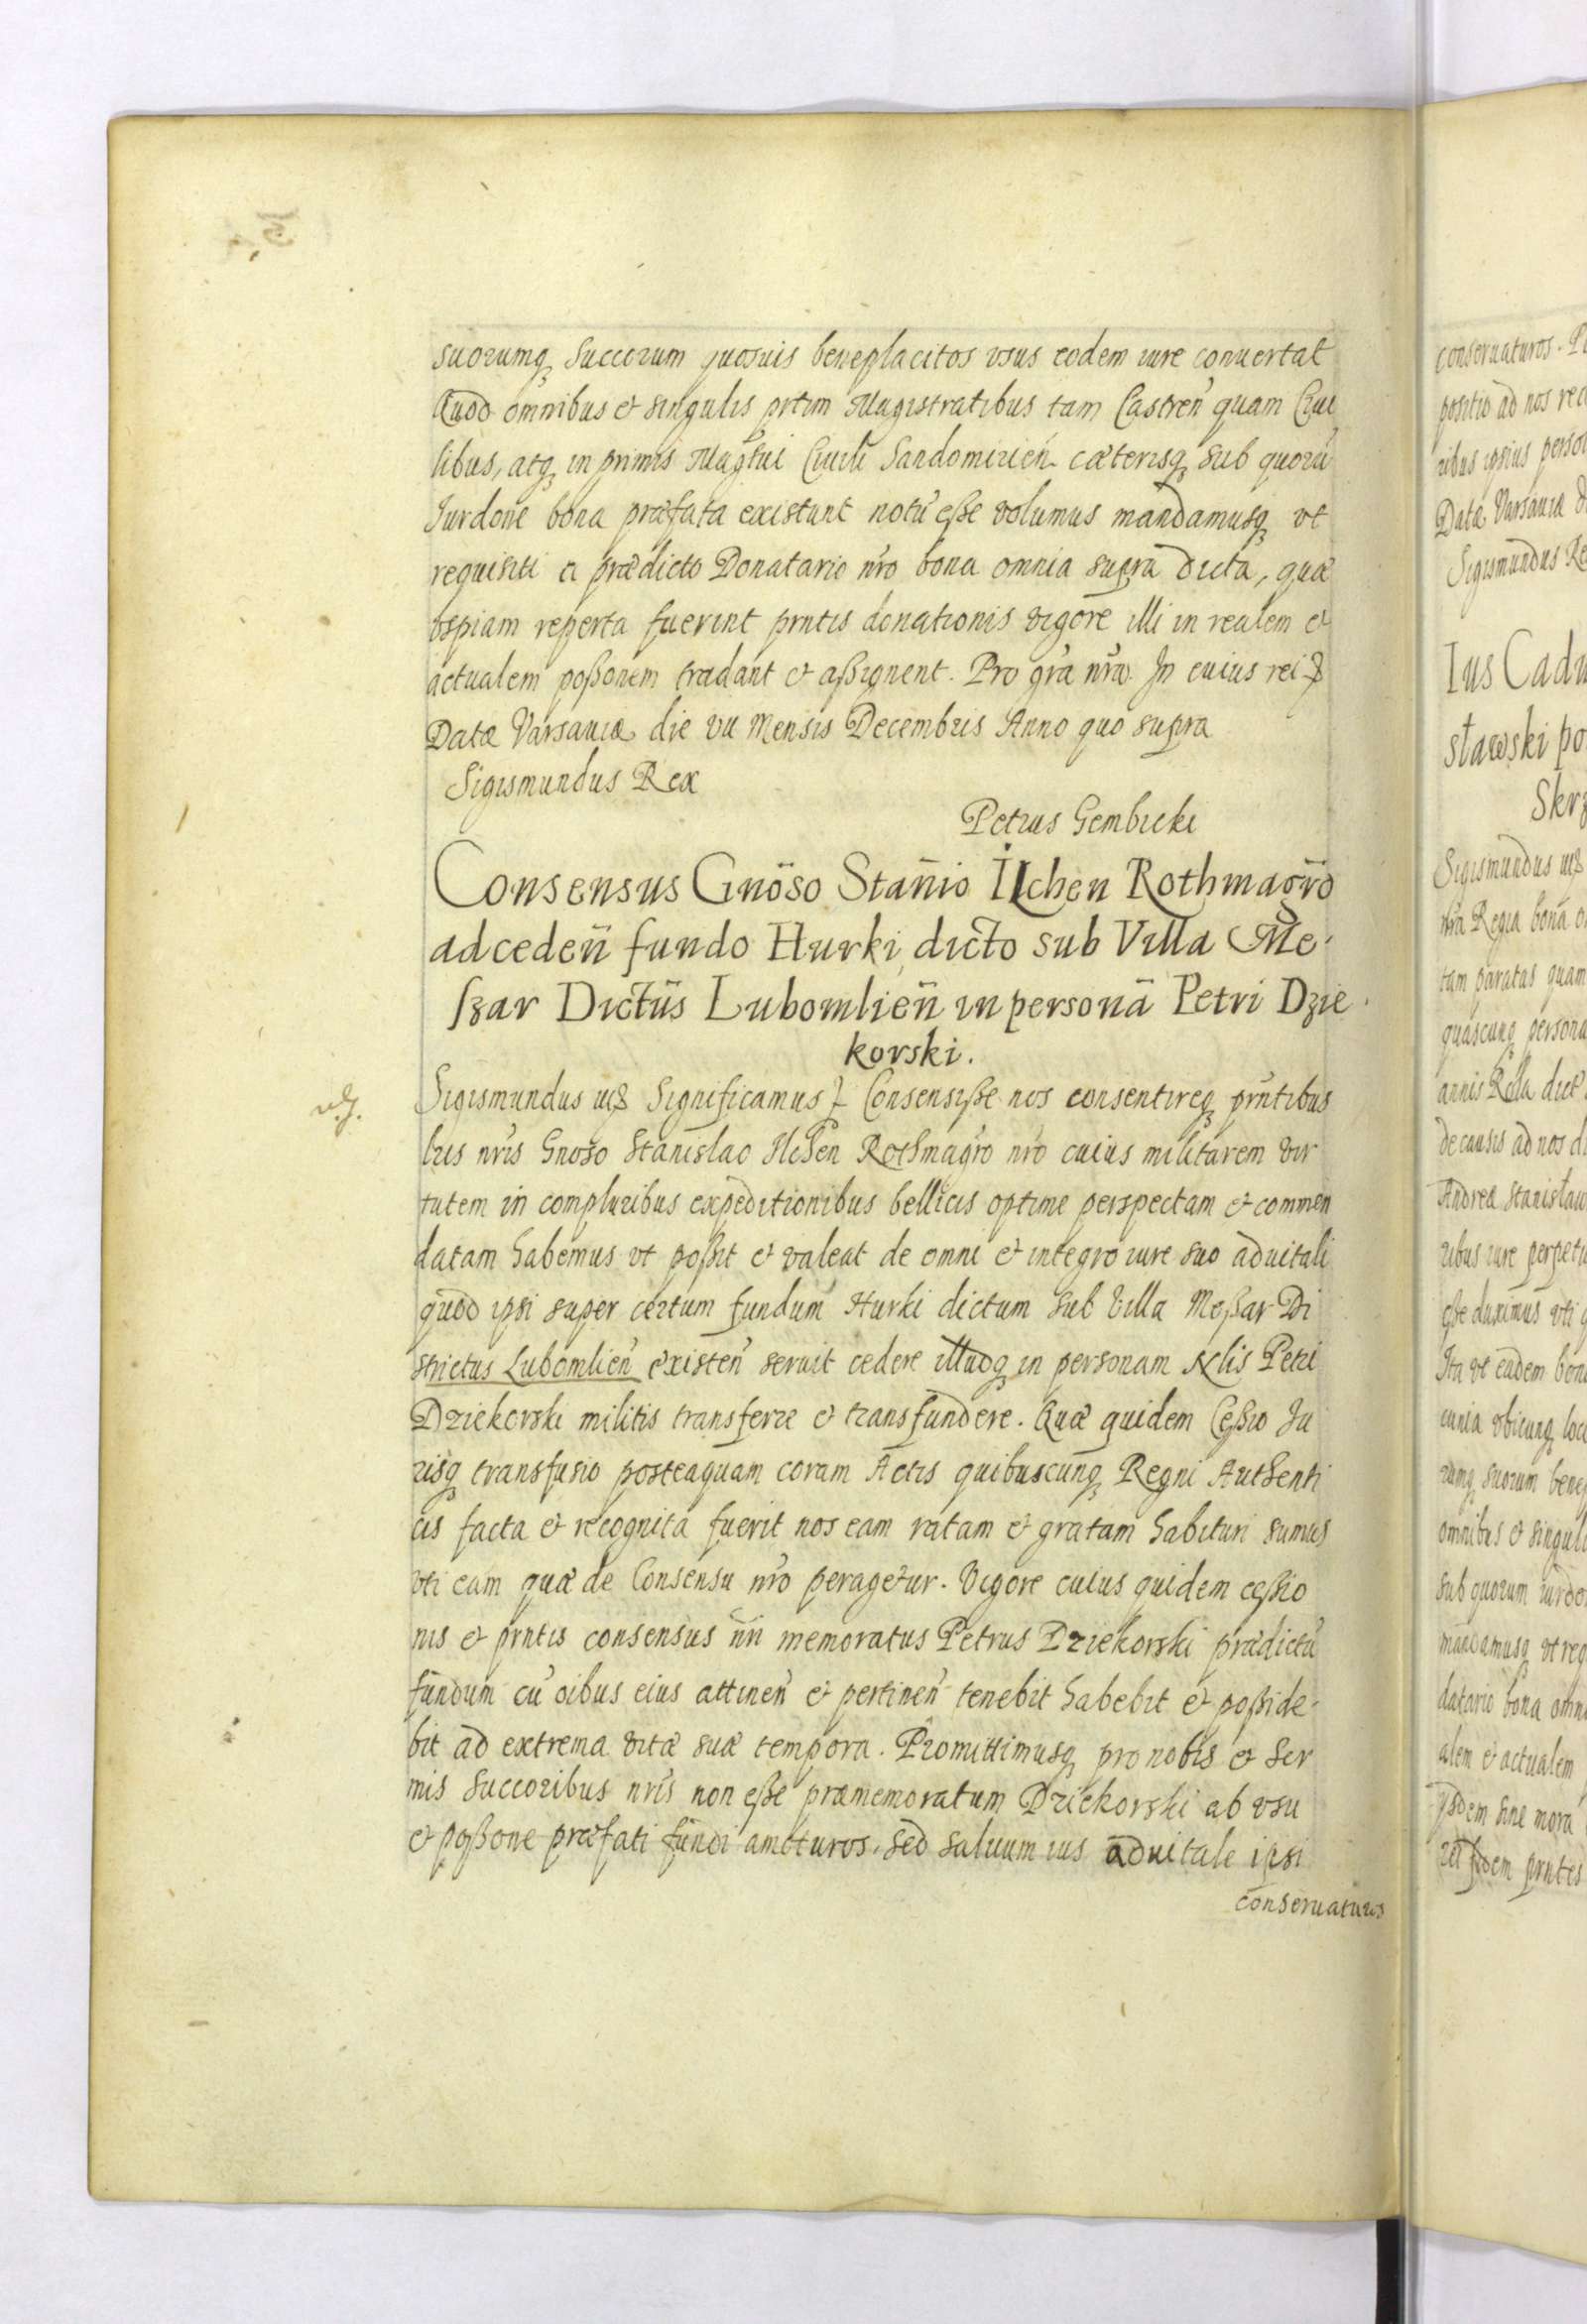 suorumq, Succorum quosuis beneplacitos vsus eodem iure conuertat
Quod omnibus et singulis prtim Magistratibus tam Castren̄ quam Ciui
libus, atq, in primis Magřtui Ciuili Sandomirien̄ cæterisq, sub quorū
Iurdone bona præfata existunt notū eße volumus mandamusq, vt
requisiti a prædicto Donatario nro bona omnia supra dicta, quæ
vspiam reperta fuerint prntis donationis vigore illi in realem et
actualem poßonem tradant et aßignent. Pro gra nra. In cuius rei
Datæ Varsauiæ die vii Mensis Decembris Anno quo supra
Sigismundus Rex
Petrus Gembicki
Consensus Gnoso Stan̄io Ilchen Rothmagro
ad ceden̄ fundo Hurki dicto sub Villa Me
szar Dictūs Lubomlien̄ in personā Petri Dzie
korski.
Sigismundus Significamus Consensiße nos consentireq, prntibus
lris nris Gnoso Stanislao Ilchen Rothmagro nro cuius militarem vir
tutem in compluribus expeditionibus bellicis optime perspectam et commen
datam habemus vt poßit et valeat de omni et integro iure suo aduitali
quod ipsi super certum fundum Hurki dictum sub Villa Meßar Di
strictus Lubomlien̄ existen̄ seruit cedere illudq, in personam Nlis Petri
Dziekorski militis transferre et transfundere. Quæ quidem Ceßio Iu
risq, transfusio posteaquam coram Actis quibuscunq, Regni Authenti
cis facta et recognita fuerit nos eam ratam et gratam habituri sumus
vti eam quæ de Consensu nro peragetur. Vigore cuius quidem ceßio
nis et prntis consensus nri memoratus Petrus Dziekorski prædictū
fundum cū oibus eius attinen̄ et pertinen̄ tenebit habebit et poßide
bit ad extrema vitæ suæ tempora. Promittimusq, pro nobis et Ser
mis Succoribus nris non eße præmemoratum Dziekorski ab vsu
et poßone præfati fundi amoturos, sed saluum ius aduitale ipsi
conseruaturos
conseruaturos.
positio ad nos
ribus ipsius
Data Varsauiæ
Sigismundus
Ius Cadu
sławski po
Skrz
Sigismundus
nra Regia bona
tam paratas quam
quascunq, persona
annis
de causis ad nos
Andreæ Stanisław
ribus iure perpetu
eße duximus vti
Ita vt eadem bon
cunia vbicunq, loc
rumq, suorum bene
omnibus et singul
sub quorum iurdo
mandamusq, vt req
datario bona omn
alem et actualem
sine mora
prntis